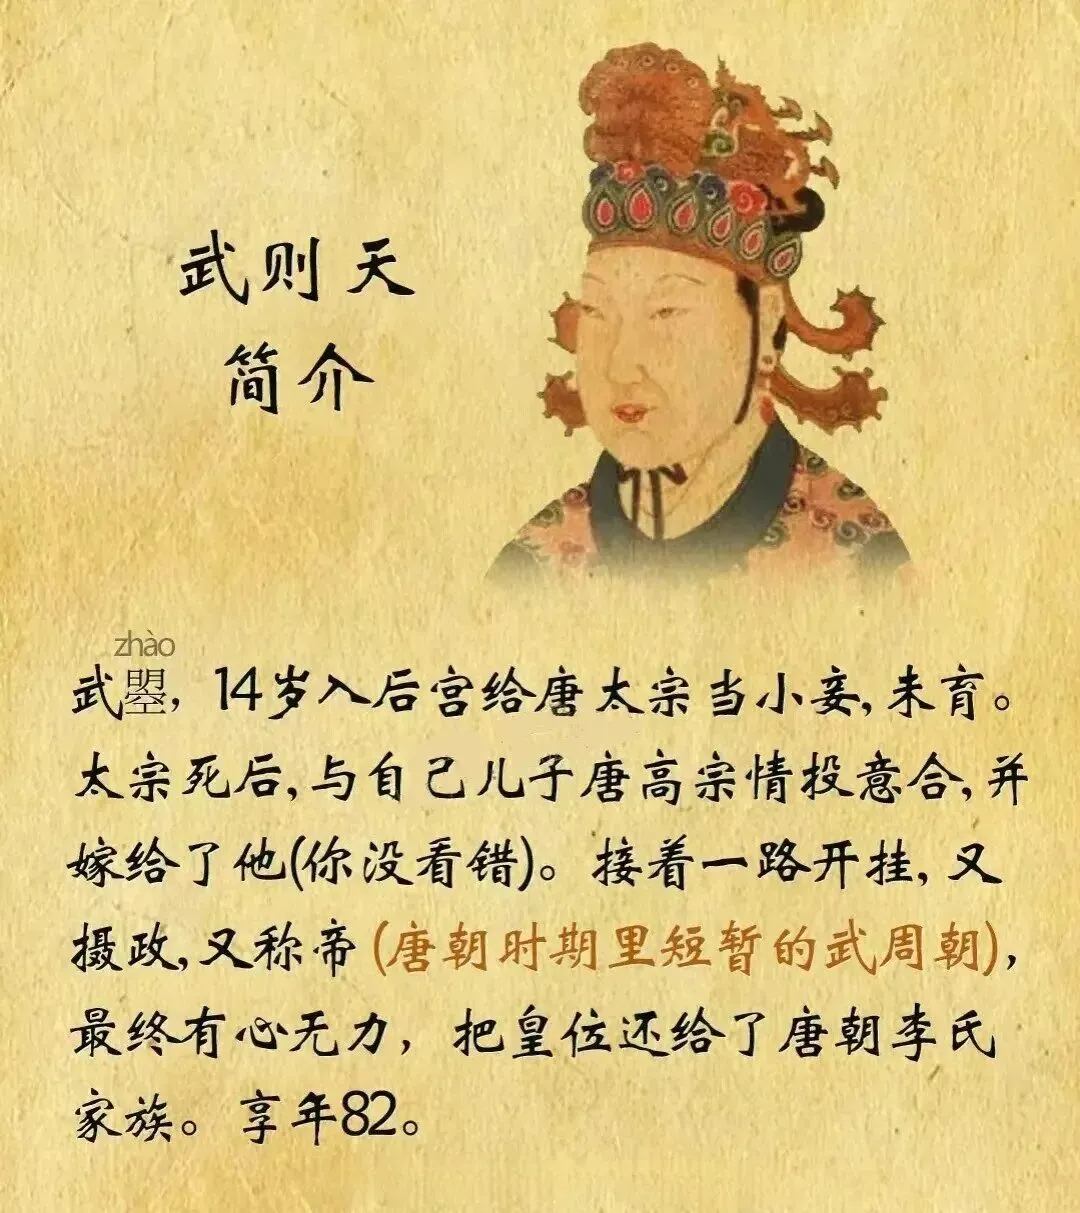 武则天
简介
zhào
武曌，14岁入后宫给唐太宗当小妾，未育。
太宗死后，与自己儿子唐高宗情投意合，并
嫁给了他(你没看错)。接着一路开挂，又
摄政，又称帝(唐朝时期里短暂的武周朝)，
最终有心无力，把皇位还给了唐朝李氏
家族。享年82。